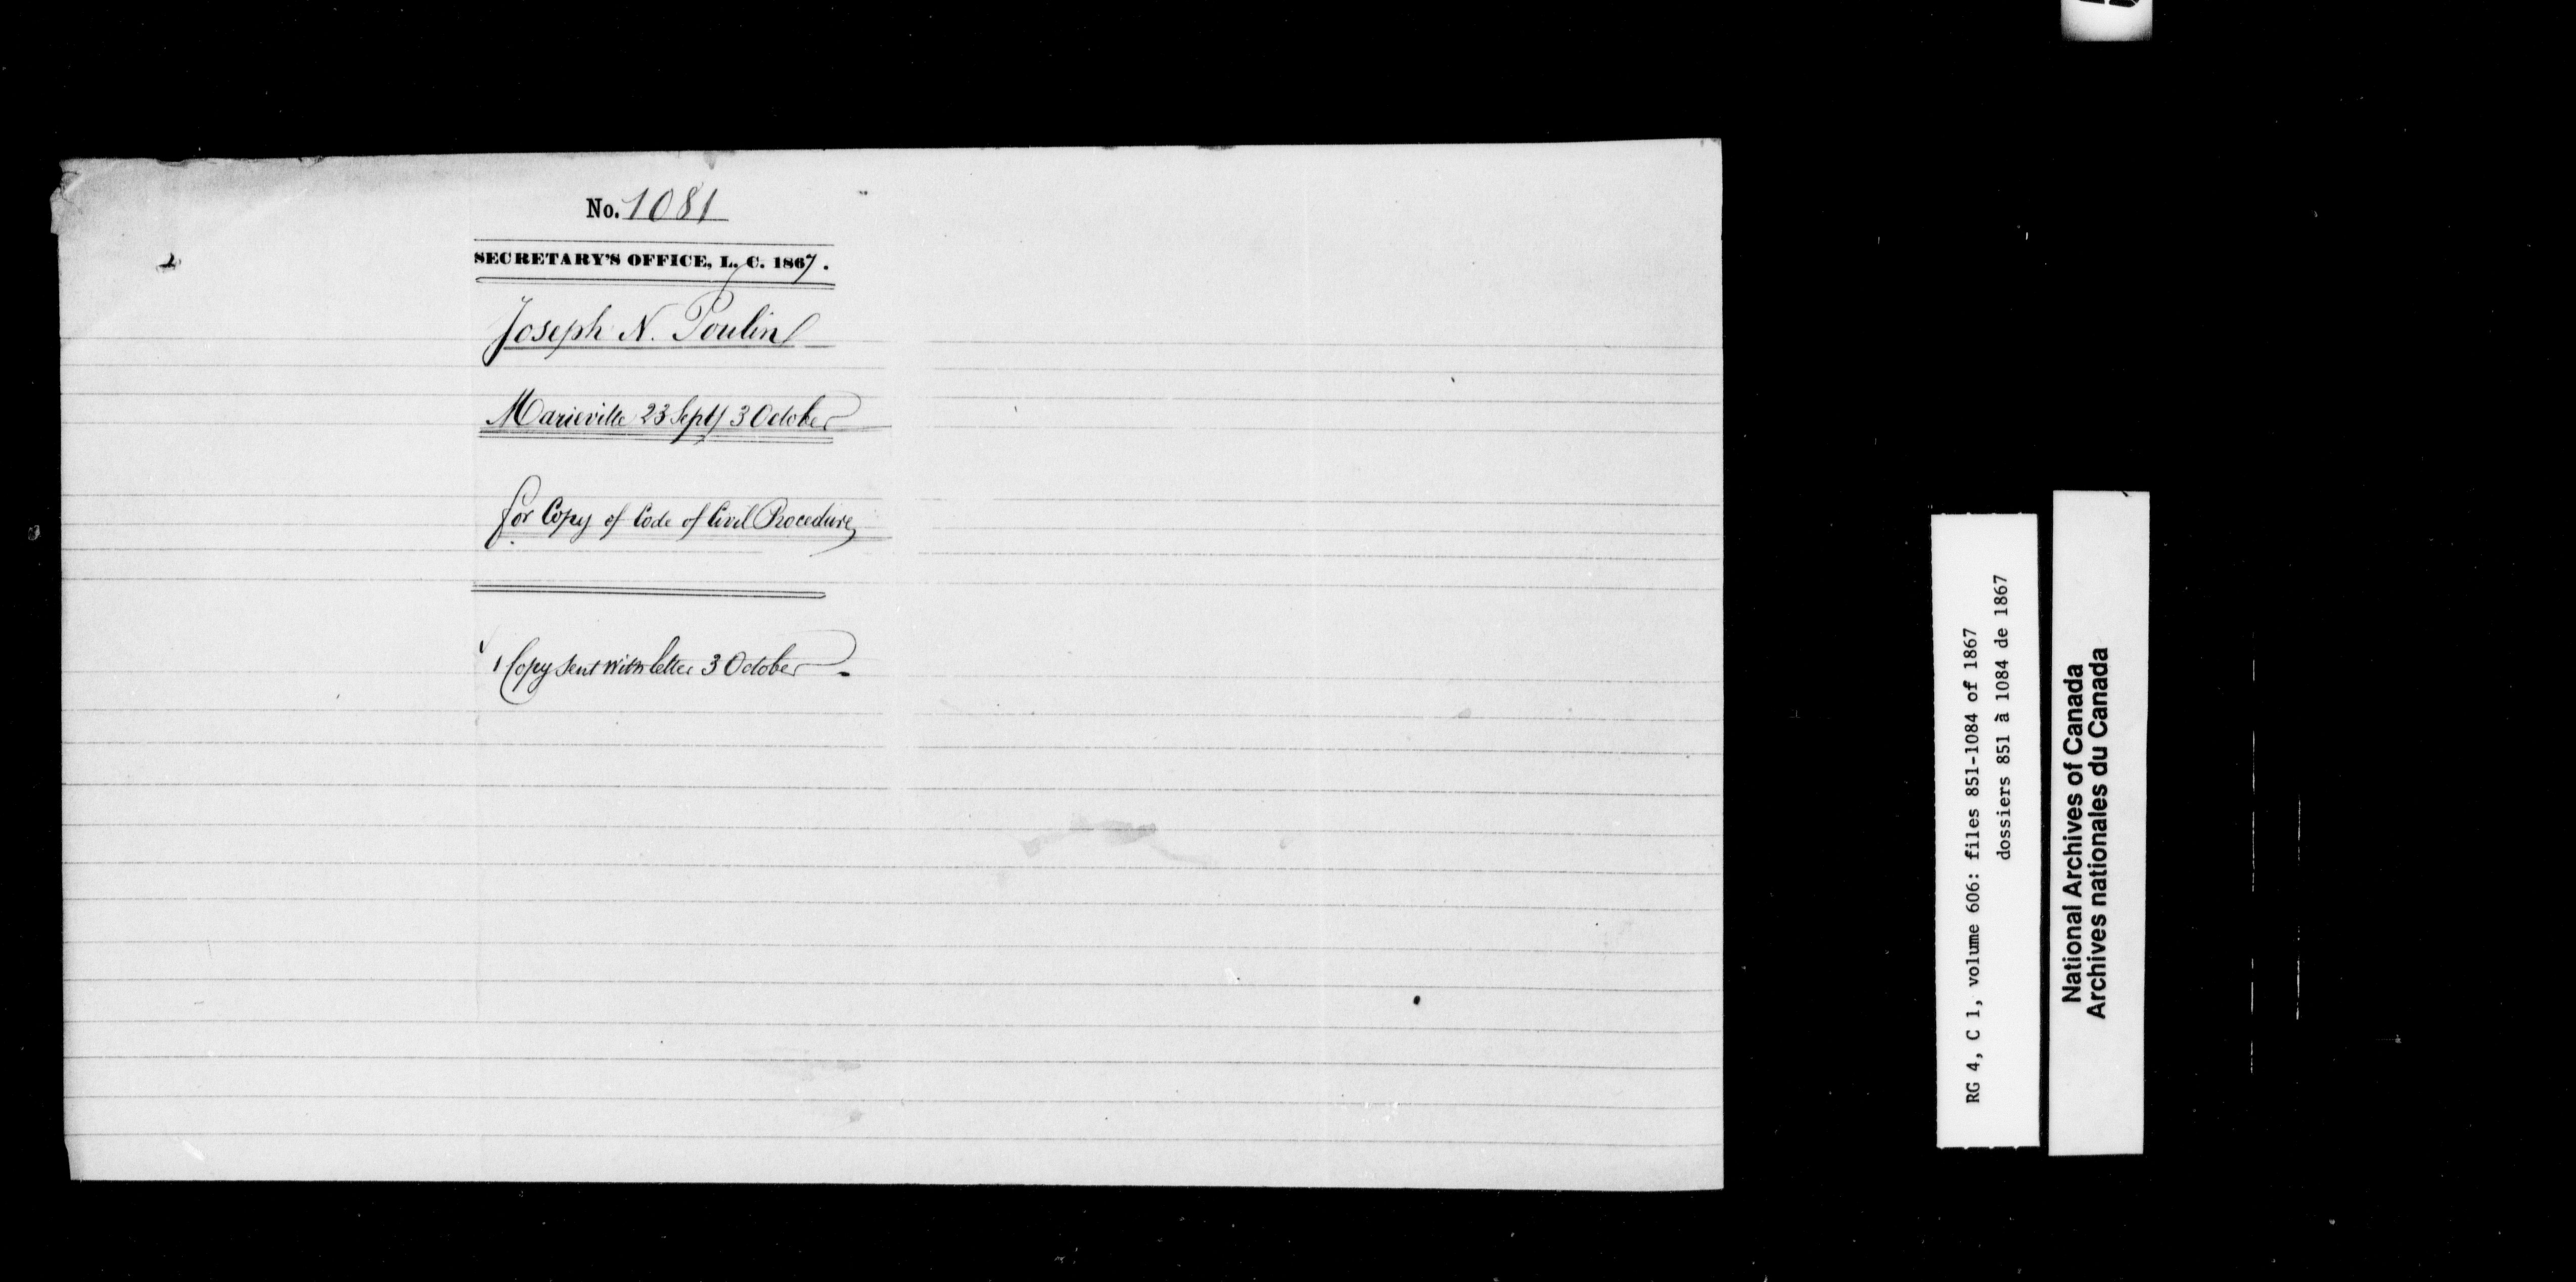 No. 1081
SECRETARY'S OFFICE, L. C. 1867.
Joseph N. Poulin
Marieville 23 Sept/ 3 October
for Copy of Code of Civil Procedure
1 Copy sent with letter 3 October -
RG 4, C 1, volume 606: files 851-1084 of 1867
dossiers 851 à 1084 de 1867
National Archives of Canada
Archives nationales du Canada